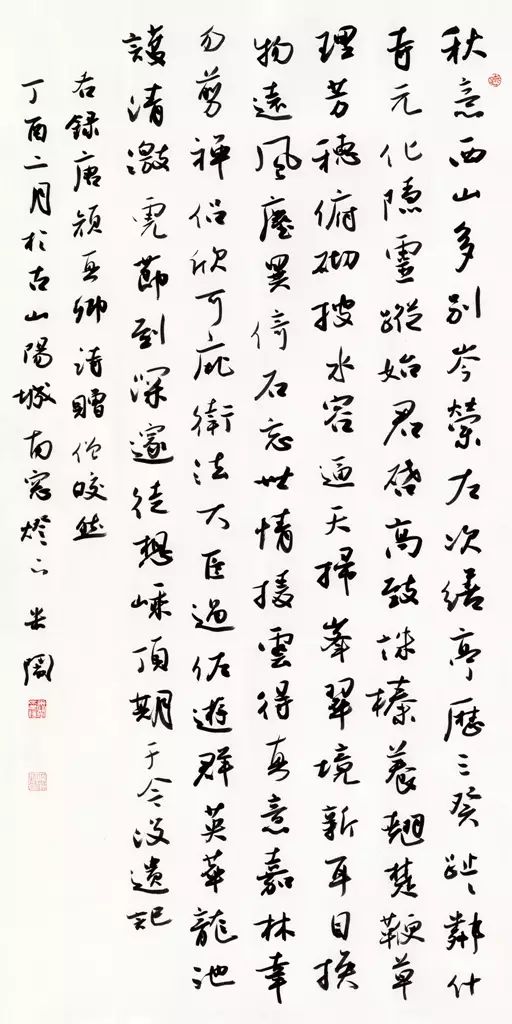 秋意西山多列岑縈左次繕亭歷三癸趾〻鄰什
寺元化隱靈蹤始君啓高致誅榛養翹楚鞭草
理芳穗俯砌披水容逼天掃峯翠境新耳目換
物遠風塵異倚石忘世情援雲得真意嘉林幸
勿剪禪侣欣可庇衛法大臣過佐遊群英萃龍池
護清澈虎節到深邃徒想嵊頂期于今沒遺記
右録唐顏真卿詩贈僧皎然
丁酉二月於古山陽城南窗燈下